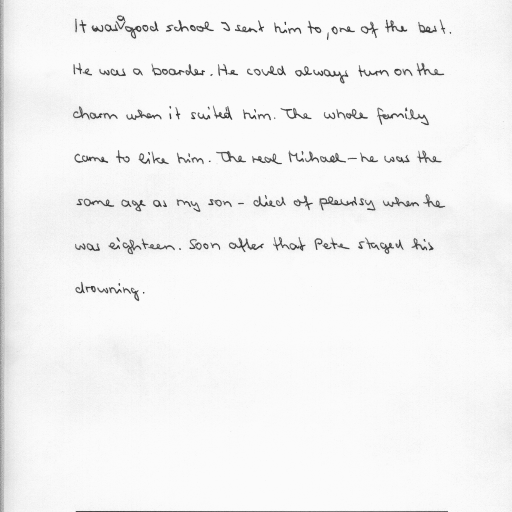 It was a good school I sent him to, one of the best.
He was a boarder. He could always turn on the
charm when it suited him. The whole family
came to like him. The real Michael - he was the
same age as my son - died of pleurisy when he
was eighteen. Soon after that Pete staged his
drowning.